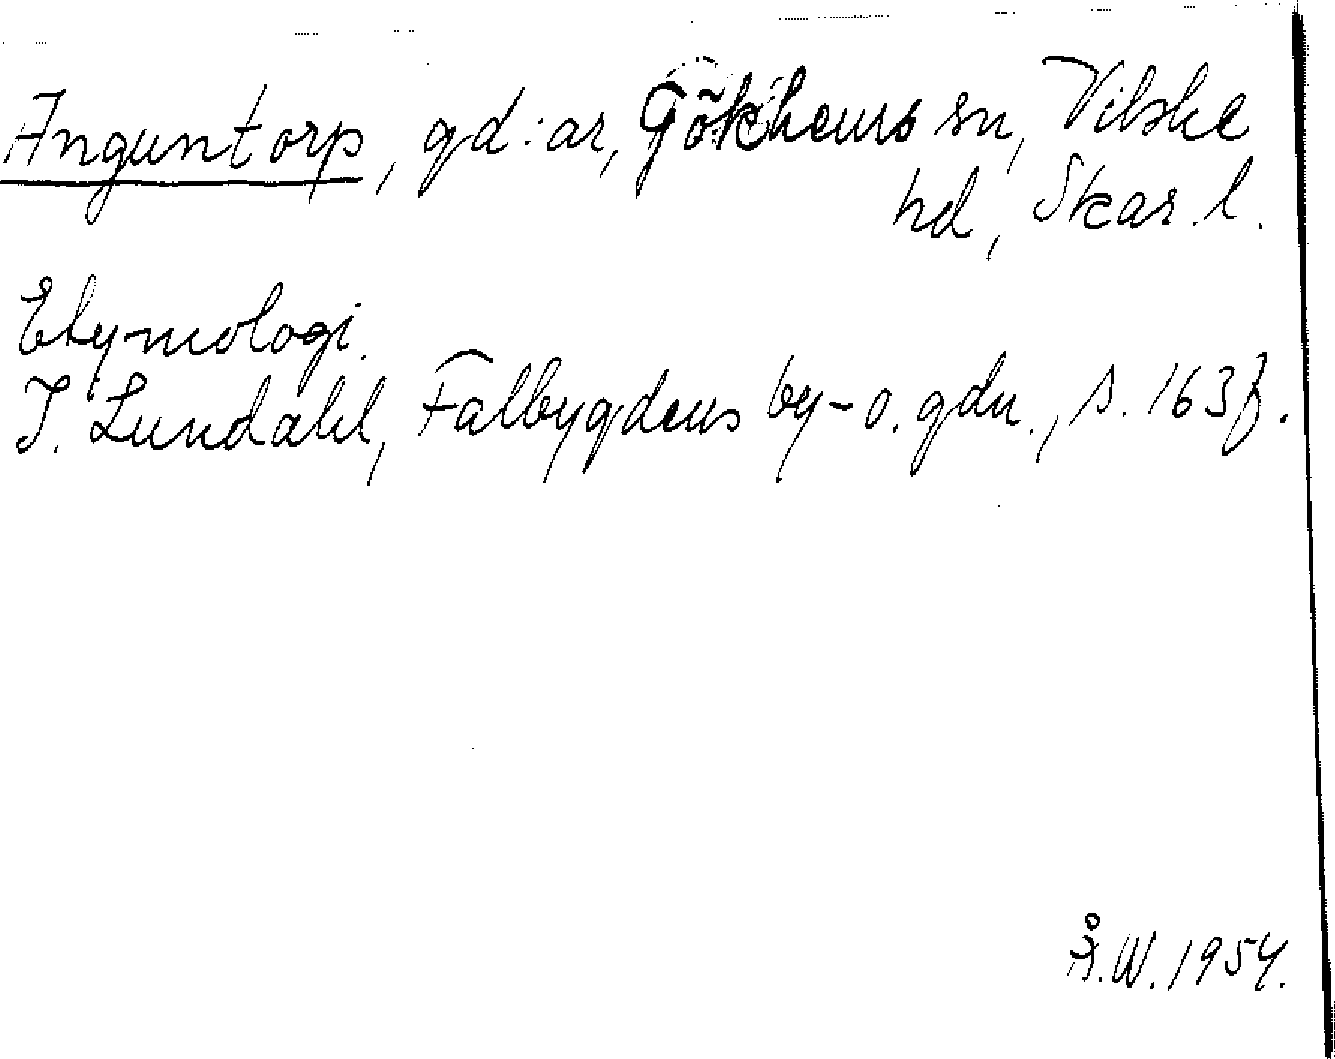 Anguntorp, gd:ar, Gökhems sn, Vilske
hd, Skar. l.
Etymologi.
I. Lundahl, Falbygdens by- o. gdn., s. 163f.
Å.W. 1954.